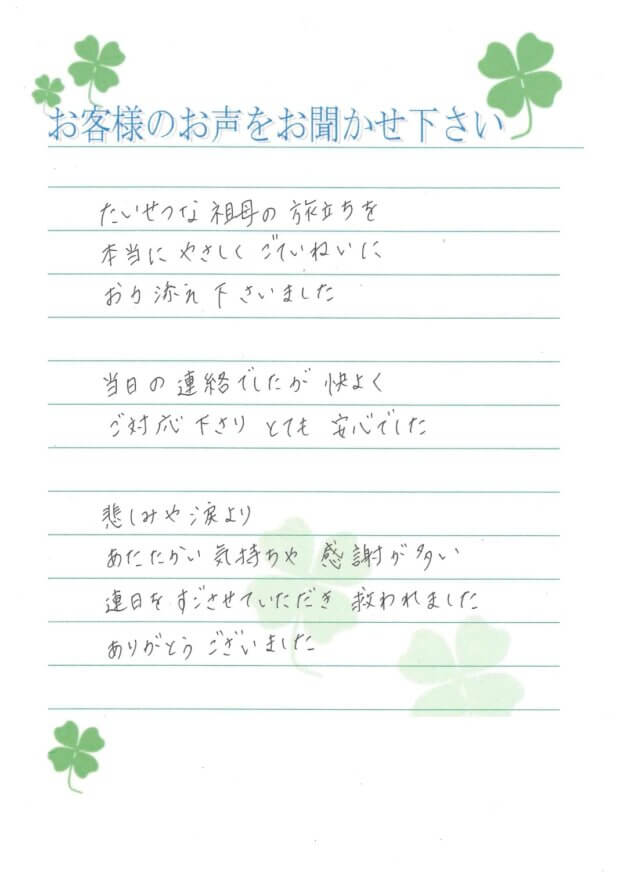 お客様のお声をお聞かせ下さい
たいせつな 祖母の 旅立ちを
本当に やさしく ごていねいに
おり添え 下さいました
当日の 連絡でしたが 快よく
ご対応 下さり とても 安心でした
悲しみや涙より
あたたかい 気持ちや 感謝が多い
連日を すごさせていただき 救われました
ありがとう ございました